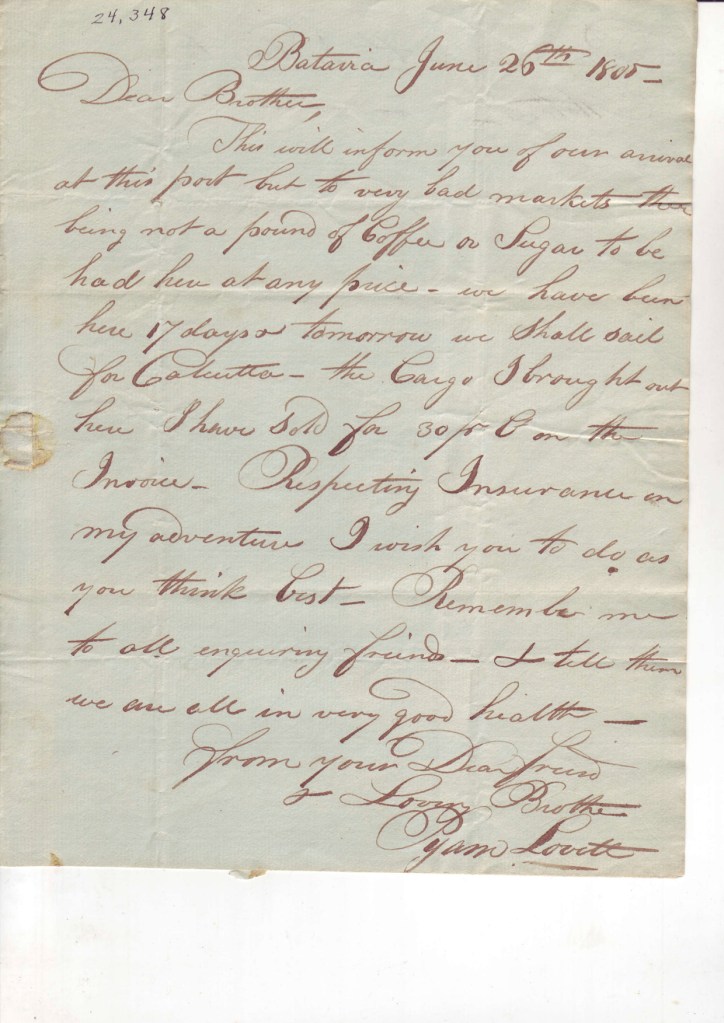 24,348
Batavia June 26th 1805
Dear Brother,
This will inform you of our arival
at this port but to very bad markets ther
being not a pound of Coffee or Sugar to be
had here at any price - we have been
here 17 days & tomorrow we Shall sail
for Calcutta - the Cargo I brought out
here I have sold for 30 pr C on the
Invoice - Respecting Insurance on
my adventure I wish you to do as
you think best - Remember me
to all enquiring friends - & tell them
we are all in very good health -
from your Dear friend
& Loving Brother
Pyam Lovett